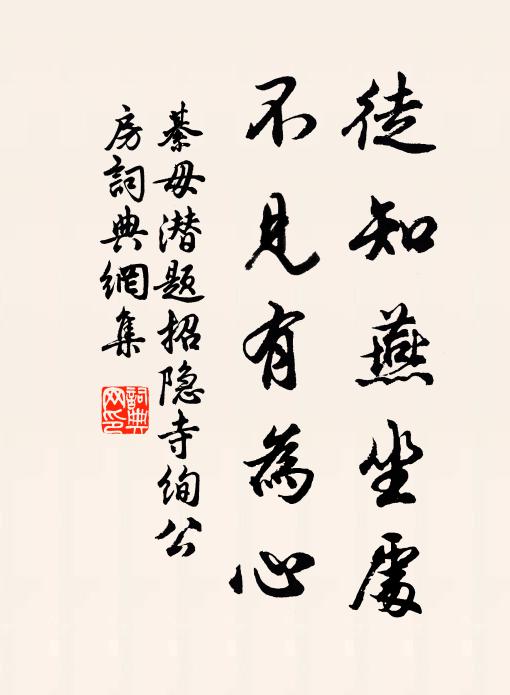 徒知燕坐處
不見有為心
綦毋潜題招隐寺絢公
房詞典網集
詞典
网印